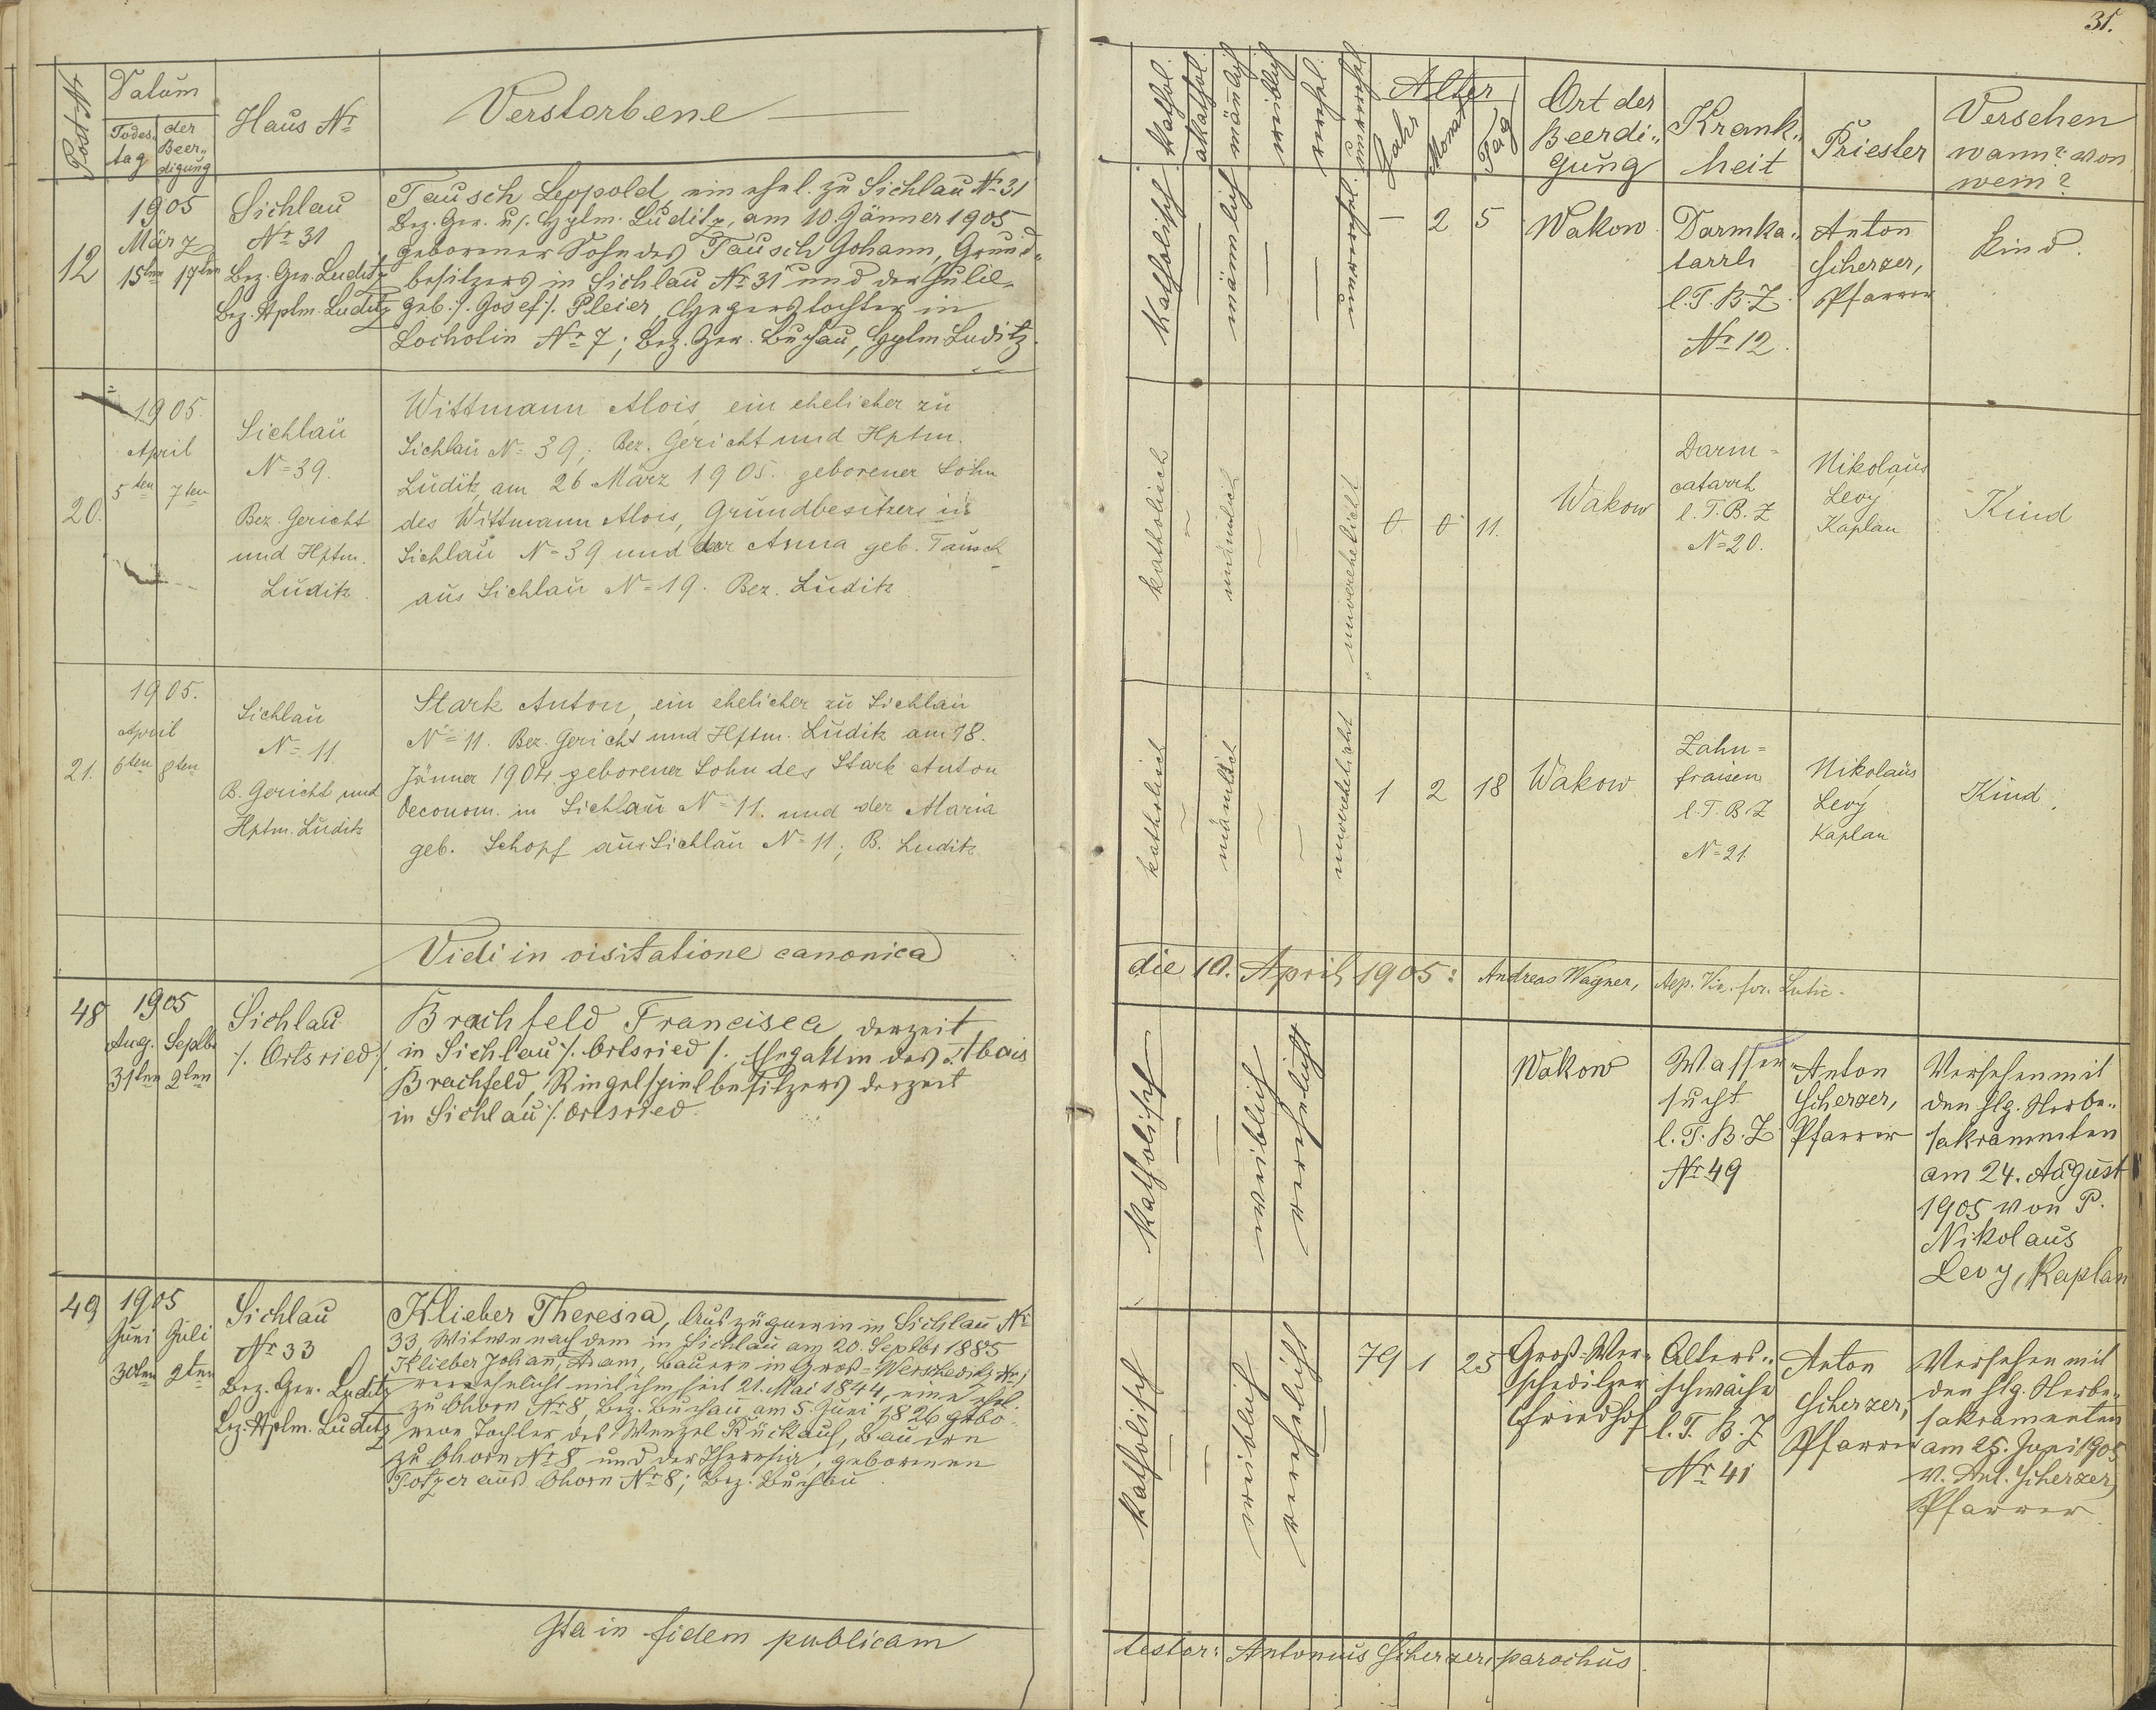 31.
Post-Nr
Datum
Todes-
tag
der
Beer-
digung
Haus Nr
Verstorbene
12
1905
März
15ten 17ten
Sichlau
Nr 31
Bez. Ger. Luditz
Bez. Hptm. Luditz
Tausch Leopold, ein ehel. zu Sichlau Nr 31
Bez. Ger. u. Hptm. Luditz, am 10. Jänner 1905
geborener Sohn des Tausch Johann, Grund-
besitzers in Sichlau Nr 31 und der Julie
geb. /: Josef :/ Pleier, Hegerstochter in
Locholin Nr 7; Bez. Ger. Buchau, Hptm Luditz.
20.
1905.
April
5ten 7ten
Sichlau
N=39.
Bez. Gericht
und Hptm.
Luditz
Wittmann Alois ein ehelicher zu
Sichlau N=39; Bez. Gericht und Hptm.
Luditz, am 26 März 1905. geborener Sohn
des Wittmann Alois, Grundbesitzers in
Sichlau N=39 und der Anna geb. Tausch
aus Sichlau N=19. Bez. Luditz
21.
1905.
April
6ten 8ten
Sichlau
N=11
B. Gericht und
Hptm. Luditz
Stark Anton, ein ehelicher zu Sichlau
N=11. Bez. Gericht und Hptm. Luditz am 18.
Jänner 1904 geborener Sohn des Stark Anton
Oeconom. in Sichlau N=11. und der Maria
geb. Schopf aus Sichlau N=11; B. Luditz
Vidi in visitatione canonica
48
1905
Aug. Septb.
31ten 2ten
Sichlau
/: Ortsried :/
Brachfeld Francisca, derzeit
in Sichlau /: Ortsried :/, Ehegattin des Alois
Brachfeld, Ringelspielbesitzers derzeit
in Sichlau /: Ortsried.
49
1905
Juni Juli
30ten 2ten
Sichlau
Nr 33
Bez. Ger. Luditz
Bez. Hptm. Luditz
Klieber Theresia, Auszüglerin in Sichlau Nr
33, Witwe nach dem in Sichlau am 20. Septbr 1885
Klieber Johann, Adam, Bauern in Groß-Werscheditz Nr 1
verehelicht mit ihm seit 21. Mai 1844, eine ehel.
zu Ohorn Nr 8, Bez. Buchau, am 5. Juni 1826 gebo-
rene Tochter des Wenzel Rückauf, Bauern
zu Ohorn Nr 8 und der Theresia, geborenen
aus Ohorn Nr 8; Bez. Buchau.
Ita in fidem publicam
kathol.
akathol.
männlich
weiblich
verehel.
unverehel.
Alter
Jahr
Monat
Tag
Ort der
Beerdi-
gung
Krank-
heit
Priester
Versehen
wann? von
wem?
katholisch
—
männlich
—
—
unverehel.
— 2 5
Wakow
Darmka-
tarrh
l. T. B. Z.
Nr 12.
Anton
Scherzer,
Pfarrer
Kind.
katholisch
männlich
unverehelicht
0 0 11.
Wakow
Darm=
catarrh
l. T. B. Z
N=20.
Nikolaus
Levy
Kaplan
Kind
katholisch
männlich
unverehelicht
1 2 18
Wakow
Zahn=
fraisen
l. T. B. Z
N=21.
Nikolaus
Levy
Kaplan
Kind.
die 10. April 1905: Andreas Wagner,
katholisch
—
—
weiblich
verehelicht
Wakow
Wasser-
sucht
l. T. B. Z
Nr 49
Anton
Scherzer,
Pfarrer
Versehen mit
den hlg. Sterbe-
sakramenten
am 24. August
1905 von P.
Nikolaus
Levy, Kaplan
katholisch
—
—
weiblich
verehelicht
—
79 1 25
Groß-Wer-
scheditzer
Friedhof
Alters-
schwäche
l. T. B. Z
Nr 41
Anton
Scherzer,
Pfarrer
Versehen mit
den hlg. Sterbe-
sakramenten
am 25. Juni 1905
v. Ant. Scherzer,
Pfarrer.
testor: Antonius Scherzer, parochus.